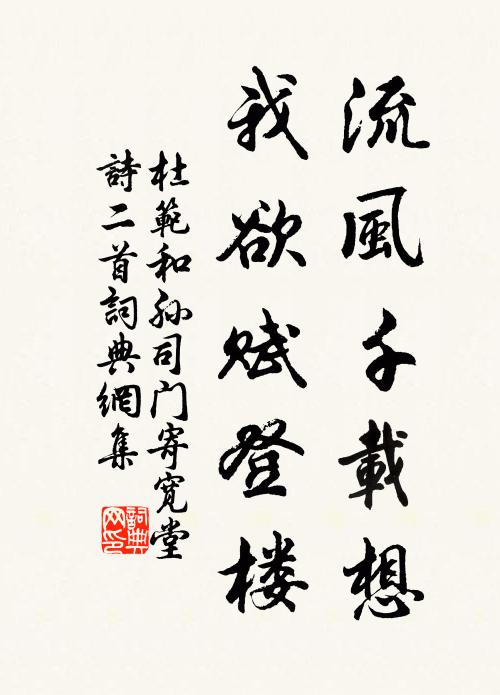 流風千載想
我欲賦登楼
杜範和孙司门寄寛堂
詩二首詞典網集
詞典
网印